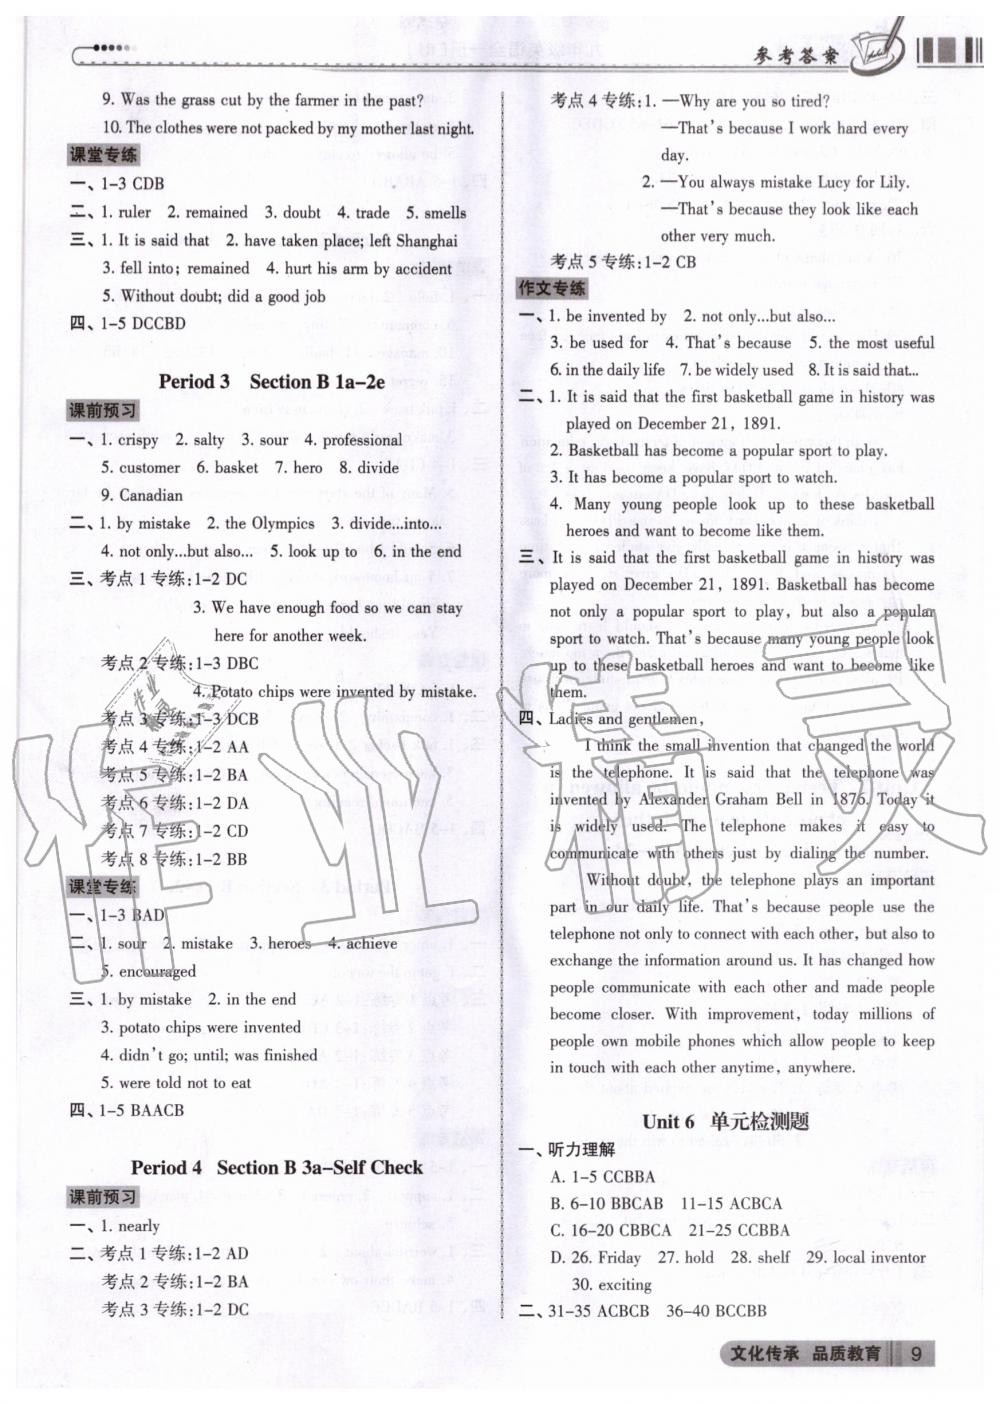 参考答案
9. Was the grass cut by the farmer in the past?
10. The clothes were not packed by my mother last night.
课堂专练
一、1-3 CDB
二、1. ruler 2. remained 3. doubt 4. trade 5. smells
三、1. It is said that 2. have taken place; left Shanghai
3. fell into; remained 4. hurt his arm by accident
5. Without doubt; did a good job
四、1-5 DCCBD
Period 3 Section B 1a-2e
课前预习
一、1. crispy 2. salty 3. sour 4. professional
5. customer 6. basket 7. hero 8. divide
9. Canadian
二、1. by mistake 2. the Olympics 3. divide...into...
4. not only...but also... 5. look up to 6. in the end
三、考点 1 专练:1-2 DC
3. We have enough food so we can stay
here for another week.
考点 2 专练:1-3 DBC
4. Potato chips were invented by mistake.
考点 3 专练:1-3 DCB
考点 4 专练:1-2 AA
考点 5 专练:1-2 BA
考点 6 专练:1-2 DA
考点 7 专练:1-2 CD
考点 8 专练:1-2 BB
课堂专练
一、1-3 BAD
二、1. sour 2. mistake 3. heroes 4. achieve
5. encouraged
三、1. by mistake 2. in the end
3. potato chips were invented
4. didn't go; until; was finished
5. were told not to eat
四、1-5 BAACB
Period 4 Section B 3a-Self Check
课前预习
一、1. nearly
二、考点 1 专练:1-2 AD
考点 2 专练:1-2 BA
考点 3 专练:1-2 DC
考点 4 专练:1. —Why are you so tired?
—That's because I work hard every
day.
2. —You always mistake Lucy for Lily.
—That's because they look like each
other very much.
考点 5 专练:1-2 CB
作文专练
一、1. be invented by 2. not only...but also...
3. be used for 4. That's because 5. the most useful
6. in the daily life 7. be widely used 8. It is said that...
二、1. It is said that the first basketball game in history was
played on December 21, 1891.
2. Basketball has become a popular sport to play.
3. It has become a popular sport to watch.
4. Many young people look up to these basketball
heroes and want to become like them.
三、It is said that the first basketball game in history was
played on December 21, 1891. Basketball has become
not only a popular sport to play, but also a popular
sport to watch. That's because many young people look
up to these basketball heroes and want to become like
them.
四、Ladies and gentlemen,
I think the small invention that changed the world
is the telephone. It is said that the telephone was
invented by Alexander Graham Bell in 1876. Today it
is widely used. The telephone makes it easy to
communicate with others just by dialing the number.
Without doubt, the telephone plays an important
part in our daily life. That's because people use the
telephone not only to connect with each other, but also to
exchange the information around us. It has changed how
people communicate with each other and made people
become closer. With improvement, today millions of
people own mobile phones which allow people to keep
in touch with each other anytime, anywhere.
Unit 6 单元检测题
一、听力理解
A. 1-5 CCBBA
B. 6-10 BBCAB 11-15 ACBCA
C. 16-20 CBBCA 21-25 CCBBA
D. 26. Friday 27. hold 28. shelf 29. local inventor
30. exciting
二、31-35 ACBCB 36-40 BCCBB
文化传承 品质教育 9
作业精灵